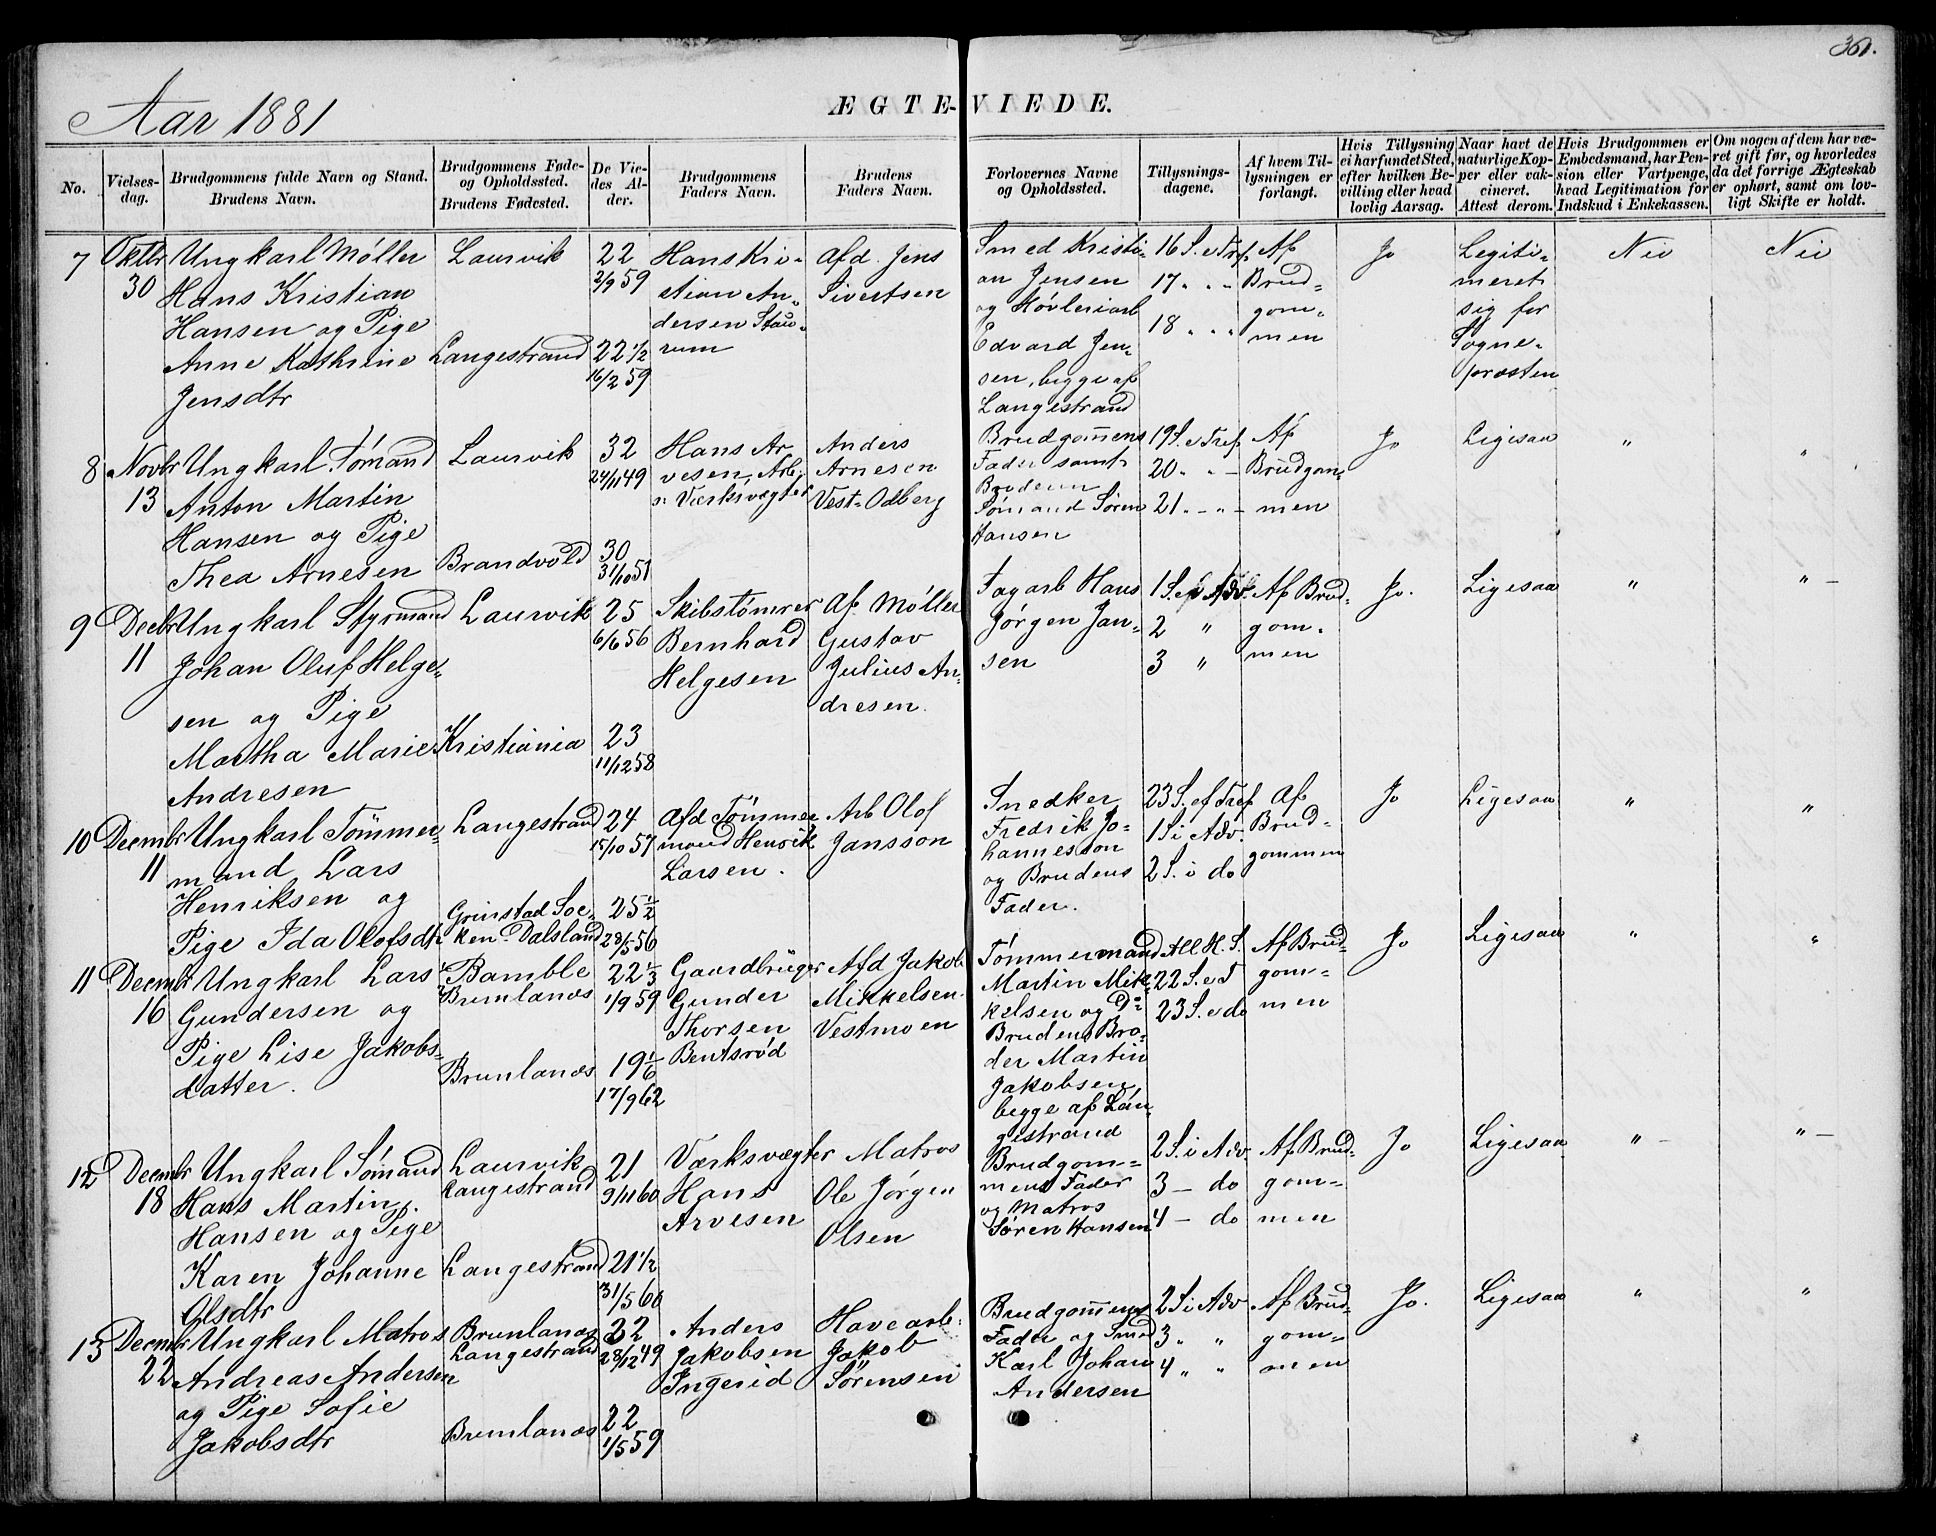 361.
Aar 1881
ÆGTEVIEDE.
No.
Vielses-
dag.
Brudgommens fulde Navn og Stand.
Brudens Navn.
Brudgommens Føde-
og Opholdssted.
Brudens Fødested.
De Vie-
des Al-
der.
Brudgommens
Faders Navn.
Brudens
Faders Navn.
Forlovernes Navne
og Opholdssted.
Tillysnings-
dagene.
Af hvem Til-
lysningen er
forlangt.
Hvis Tillysning
ei har fundet Sted,
efter hvilken Be-
villing eller hvad
lovlig Aarsag.
Naar havt de
naturlige Kop-
per eller vak-
cineret.
Attest derom.
Hvis Brudgommen er
Embedsmand, har Pen-
sion eller Vartpenge,
hvad Legitimation for
Indskud i Enkekassen.
Om nogen af dem har væ-
ret gift før, og hvorledes
da det forrige Ægteskab
er ophørt, samt om lov-
ligt Skifte er holdt.
7
Oktbr
30
Ungkarl Møller
Hans Kristian
Hansen og Pige
Anne Kathrine
Jensdtr
Laurvik
Langestrand
22
2/9 59
22 1/2
16/2 59
Hans Kri-
stian An-
dersen Stau-
rum
Afd. Jens
Sivertsen
Smed Kristi-
an Jensen
og Høvleriarb
Edvard Jen-
sen, begge af
Langestrand
16 S. e Tref
17 " " "
18 " " "
Af
Brud-
gom-
men
Jo
Legiti-
meret
sig for
Sogne-
presten
Nei
Nei
8
Novbr
13
Ungkarl Sømand
Anton Martin
Hansen og Pige
Thea Arnesen
Laurvik
Brandvold
32
24/11 49
30
31/10 51
Hans Ar
vesen, Arb.
v. Værksvægter
Anders
Arnesen
Vest-Odberg
Brudgom̄ens
Fader samt
Broderen
Sømand Søren
Hansen
19 S. e Tref
20 " " -
21 " - " -
Af
Brudgom-
men
Jo
Ligesaa
"
"
9
Decbr
11
Ungkarl Styrmand
Johan Oluf Helge-
sen og Pige
Martha Marie
Andresen
Laurvik
Kristiania
25
6/6 56
23
11/12 58
Skibstømrer
Bernhard
Helgesen
Af Møller
Gustav
Julius An-
dresen.
Fagarb Hans
Jørgen Jan-
sen
1 S. Adv.
2 "
3 "
Af Brud-
gom-
men
Jo.
Ligesaa
"
" -
10
Decmbr
11
Ungkarl Tømmer-
mand Lars
Henriksen og
Pige Ida Olofsdtr
Langestrand
Grinstad Soc-
ken. Dalsland
24
15/10 57
25 1/2
28/5 56
Afd Tømmer
mand Henrik
Larsen.
Arb Olof
Jansson
Snedker
Fredrik Jo-
hannesson
og Brudens
Fader.
23 S. ef Tref
1 S i Adv.
2 S. i do
Af
Brud-
gommen
Jo
Ligesaa
"
"
11
Decmbr
16
Ungkarl Lars
Gundersen og
Pige Lise Jakobs-
datter.
Bamble
Brunlanæs
Brunlanæs
22 1/3
1/9 59
19 1/6
17/9 62
Gaardbruger
Gunder
Thorsen
Bentsrød
Afd Jakob
Mikkelsen
Vestmoen
Tømmermand
Martin Mik-
kelsen og
Brudens Bro-
der Martin
Jakobsen
begge af Lan-
gestrand
All H. S.
22 S. e T
23 S. e do
Af Brud-
gom-
men
Jo
Ligesaa
"
"
12
Decmbr
18
Ungkarl Sømand
Hans Martin
Hansen og Pige
Karen Johanne
Olsdtr
Laurvik
Langestrand
Langestrand
21
9/11 60
21 1/2
31/5 60
Værksvægter
Hans
Arvesen
Matros
Ole Jørgen
Olsen
Brudgom-
mens Fader
og Matros
Søren Hansen
2 S. i Adv
3 - do
4 - do
Af Brud-
gom-
men
Jo
Ligesaa
" -
" -
13
Decmbr
22
Ungkarl Matros
Andreas Andersen
og Pige Sofie
Jakobsdtr
Brunlanæs
Langestrand
Brunlanæs
22
28/12 49
22
1/5 59
Anders
Jakobsen
Ingerid
Havearb.
Jakob
Sørensen
Brudgom̄ens
Fader og Smed
Karl Johan
Andersen
2 S i Adv
3 " "
4 " "
Af Brud-
gom-
men
Jo.
Ligesaa
"
"